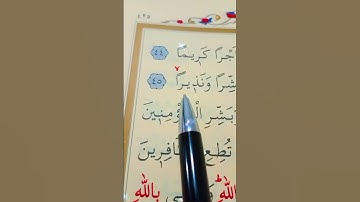 ٤٢٥
جْرًا كَرِيمًا ٤٤
شِّرًا وَنَذِيرًا ٤٥
بَشِّرِ الْمُؤْمِنِينَ
تُطِعِ الْكَافِرِينَ
اللّٰهِ بِاللّٰهِ